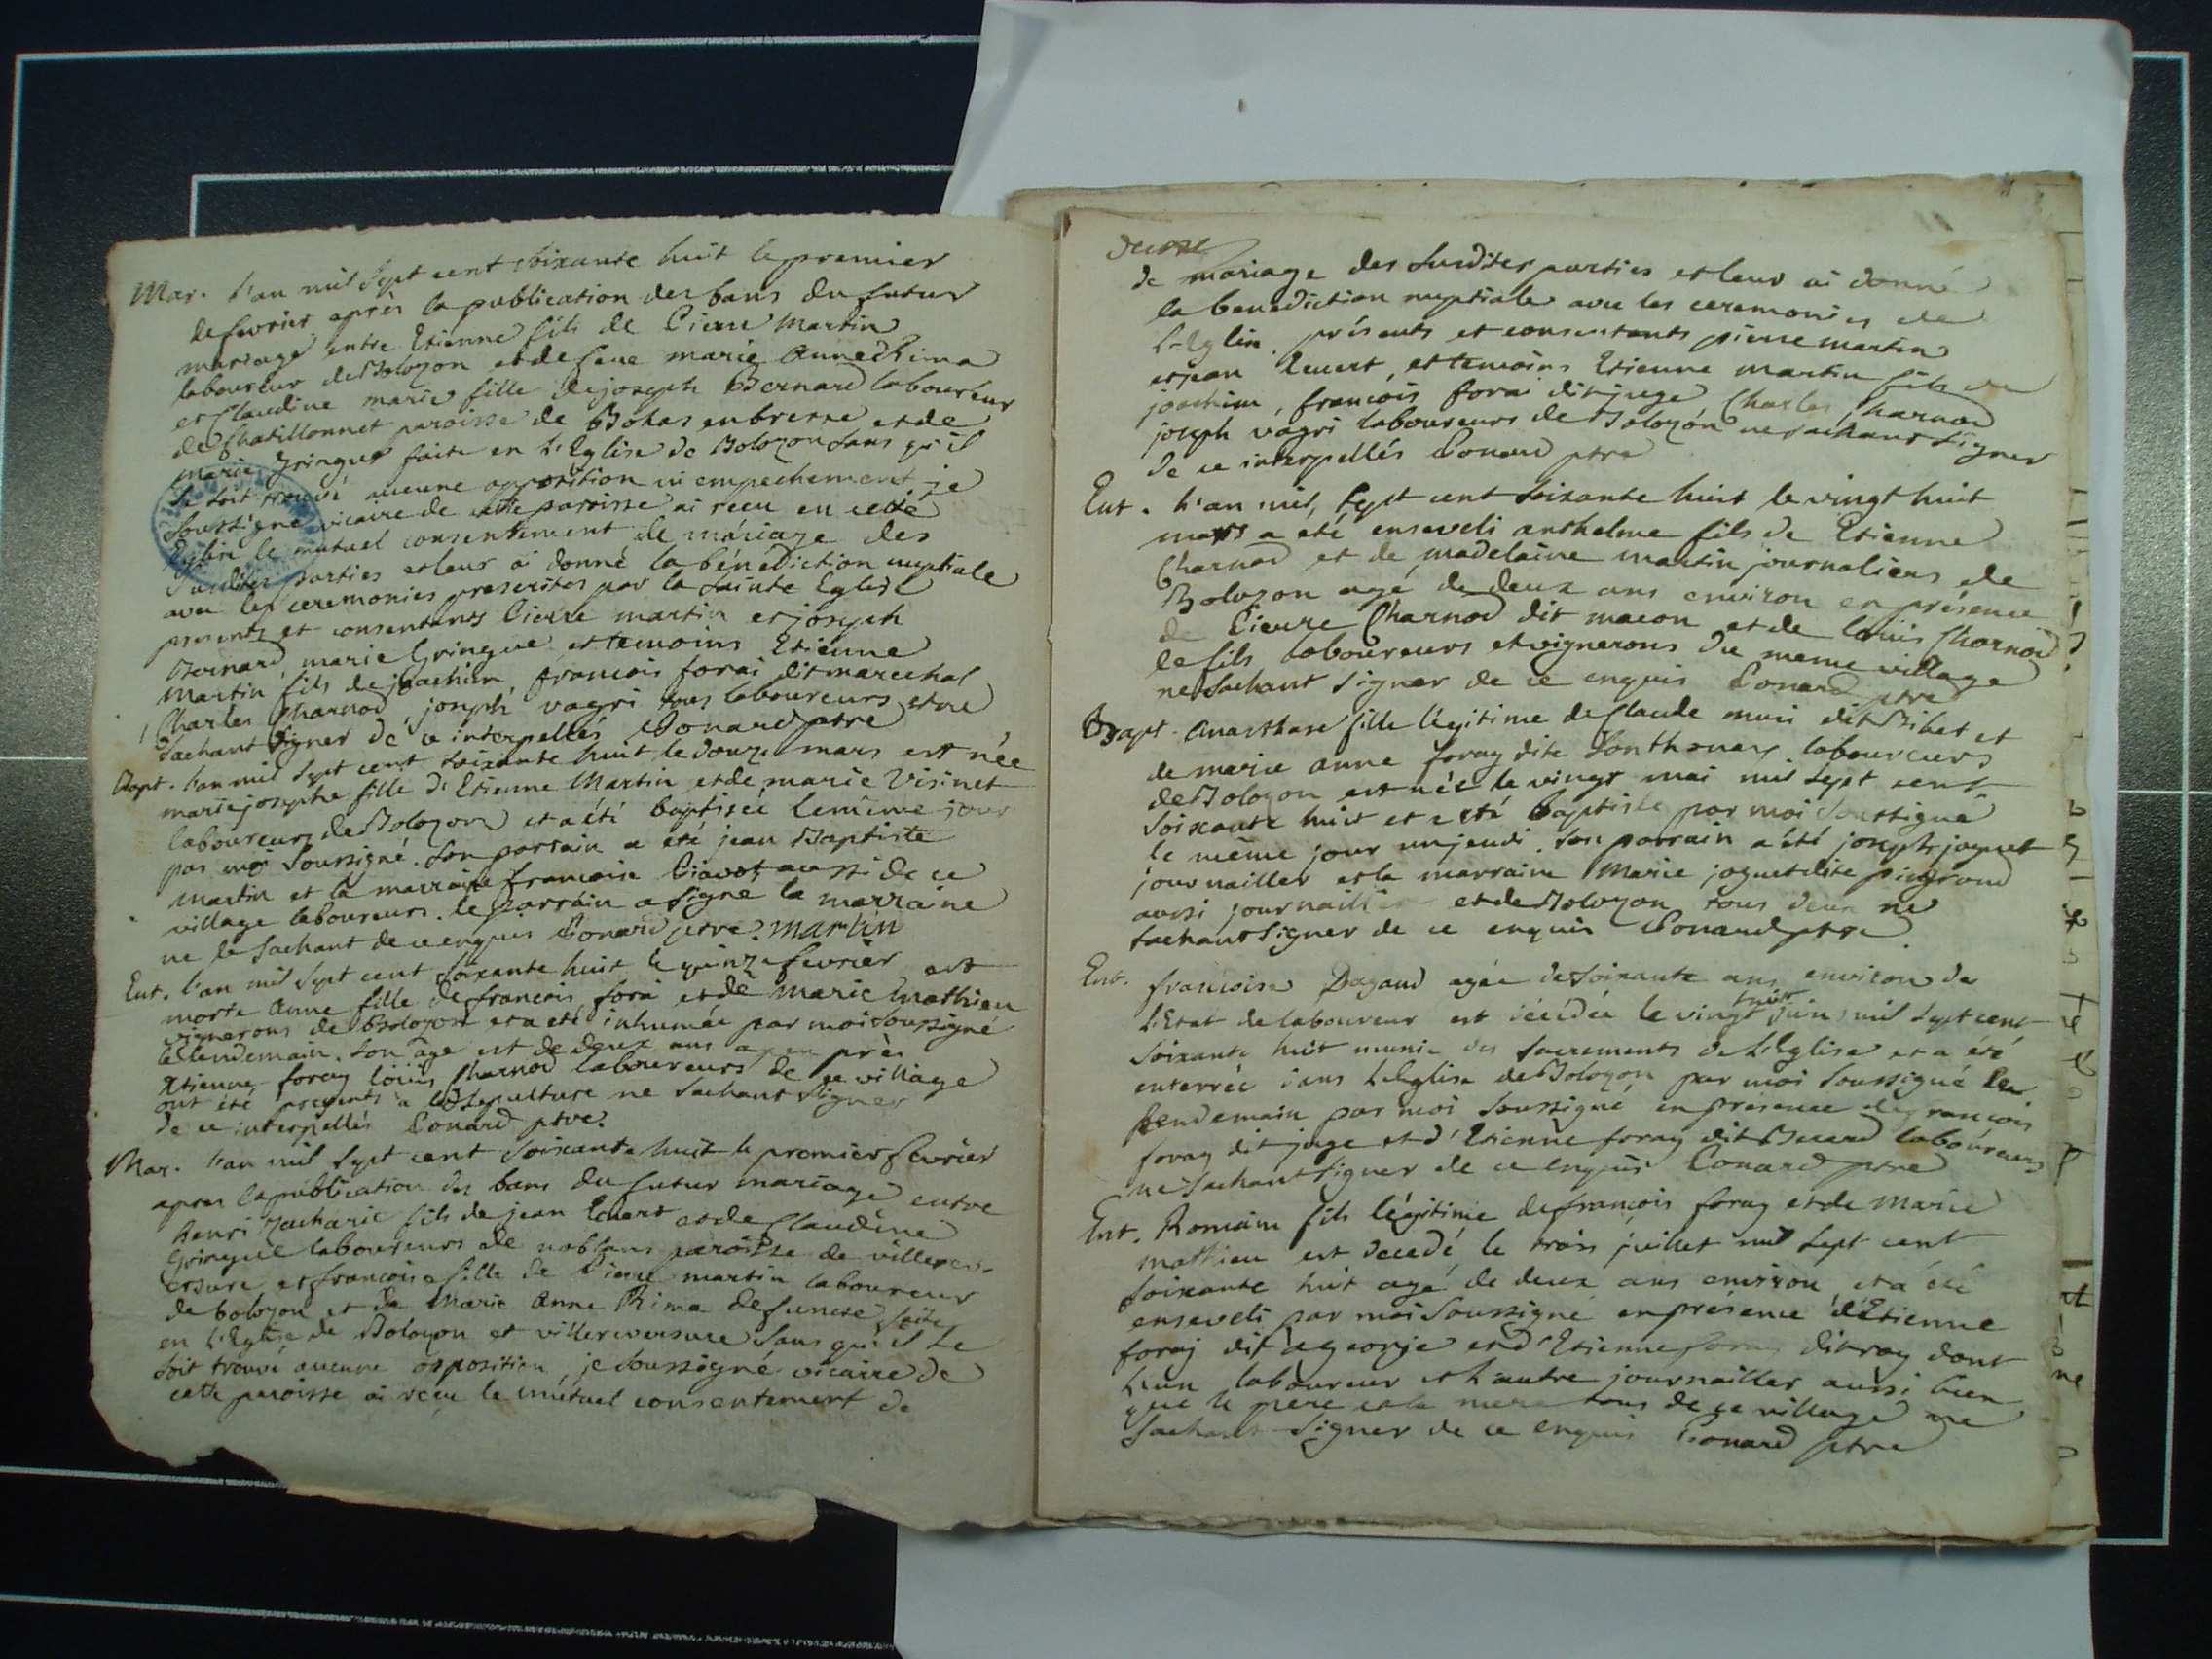 Mar. L'an mil sept cent soixante huit le premier
de fevrier après la publication des bans du futur
mariage entre Etienne fils de Pierre Martin
laboureur de Bolozon et de feue marie Anne Rima
et Claudine marie fille de joseph Bernard laboureur
de Chatillonnet paroisse de Bohas en bresse et de
marie Gringue faite en L'Eglise de Bolozon sans qu'il
se soit trouvé aucune opposition ni empechement je
soussigné vicaire de cette paroisse ai recu en cette
Eglise le mutuel consentement de màriage des
susdites parties et leur ai donné la bénédiction nuptiale
avec les ceremonies prescrites par la sainte Eglise
presents et consentants Pierre martin et joseph
Bernard, marie Gringue et temoins Etienne
Martin fils de joachim francois forai dit marechal
Charles Charnod joseph vagri tous laboureurs et ne
sachant signer de ce interpellés Conard ptre
Bapt. L'an mil sept cent soixante huit le douze mars est née
marie josephe fille d'Etienne Martin et de marie Visinet
laboureurs de Bolozon et a été baptisée le même jour
par moi soussigné. son parrain a été jean Baptiste
martin et la marraine francoise Ciavot aussi de ce
village laboureurs. le parrain a signé la marraine
ne le sachant de ce enquis Conard ptre. martin
Ent. L'an mil sept cent soixante huit le quinze fevrier est
morte Anne fille de francois forai et de marie Mathieu
vignerons de Bolozon et a eté inhumée par moi soussigné
le lendemain. son âge est de deux ans a peu près
Etienne foray loüis Charnod laboureurs de ce village
ont été presents a la sepulture ne sachant signer
de ce interpellés Conard ptre.
Mar. L'an mil sept cent soixante huit le premier fevrier
apres la publication des bans du futur mariage entre
henri Zacharie fils de jean Ecuert et de Claudine
Gringue laboureurs de noblans paroisse de villerev-
ersure et francoise fille de Pierre martin laboureur
de bolozon et de Marie Anne Rima defuncte faite
en L'Eglise de Bolozon et villereversure sans qu'il se
soit trouvé aucune opposition, je soussigné vicaire de
cette paroisse ai reçu le mutuel consentement de
de mariage des susdites parties et leur ai donné
la benediction nuptiale avec les ceremonies de
L'Eglise. présents et consentants pierre martin
et jean Ecuert, et temoins Etienne martin fils de
joachim, francois forai dit juge Charles Charnod
joseph vagri laboureurs de Bolozon ne sachant signer
de ce interpellés Conard ptre
Ent. L'an mil, sept cent soixante huit le vingt huit
mars a eté enseveli anthelme fils de Etienne
Charnod et de madelaine martin journaliers de
Bolozon agé de deux ans environ en présence
de Pierre Charnod dit macon et de louis Charnod
le fils laboureurs et vignerons du meme village
ne sachant signer de ce enquis Conard ptre
Bapt. Anasthase fille légitime de Claude muri dit Bihet et
de marie anne foray dite laboureurs
de Bolozon est née le vingt mai mil sept cent
soixante huit et a eté baptisée par moi soussigné
le même jour un jeudi. son parrain a été joseph joguet
journailler et la marraine Marie joguet dite pingrond
aussi journaillier et de Bolozon tous deux ne
sachant signer de ce enquis Conard ptre.
Ent. francoise Dagaud agée de soixante ans environ de
L'Etat de laboureur est décédée le vingt huit juin mil sept cent
soixante huit munie des sacrements de L'Eglise et a été
enterrée dans L'Eglise de Bolozon par moi soussigné le
lendemain par moi soussigné en présence de francois
foray dit juge et d'Etienne foray dit Bicard laboureurs
ne sachant signer de ce enquis Conard ptre
Ent. Romain fils légitime de françois foray et de Marie
mathieu est decedé le trois juillet mil sept cent
soixante huit agé de deux ans environ et a été
enseveli par moi soussigné en présence d'Etienne
foraj dit ageorje et d'Etienne foray dit ray dont
L'un laboureur et L'autre journailler aussi bien
que le pere et la mere tous de ce village ne
sachant signer de ce enquis Conard ptre